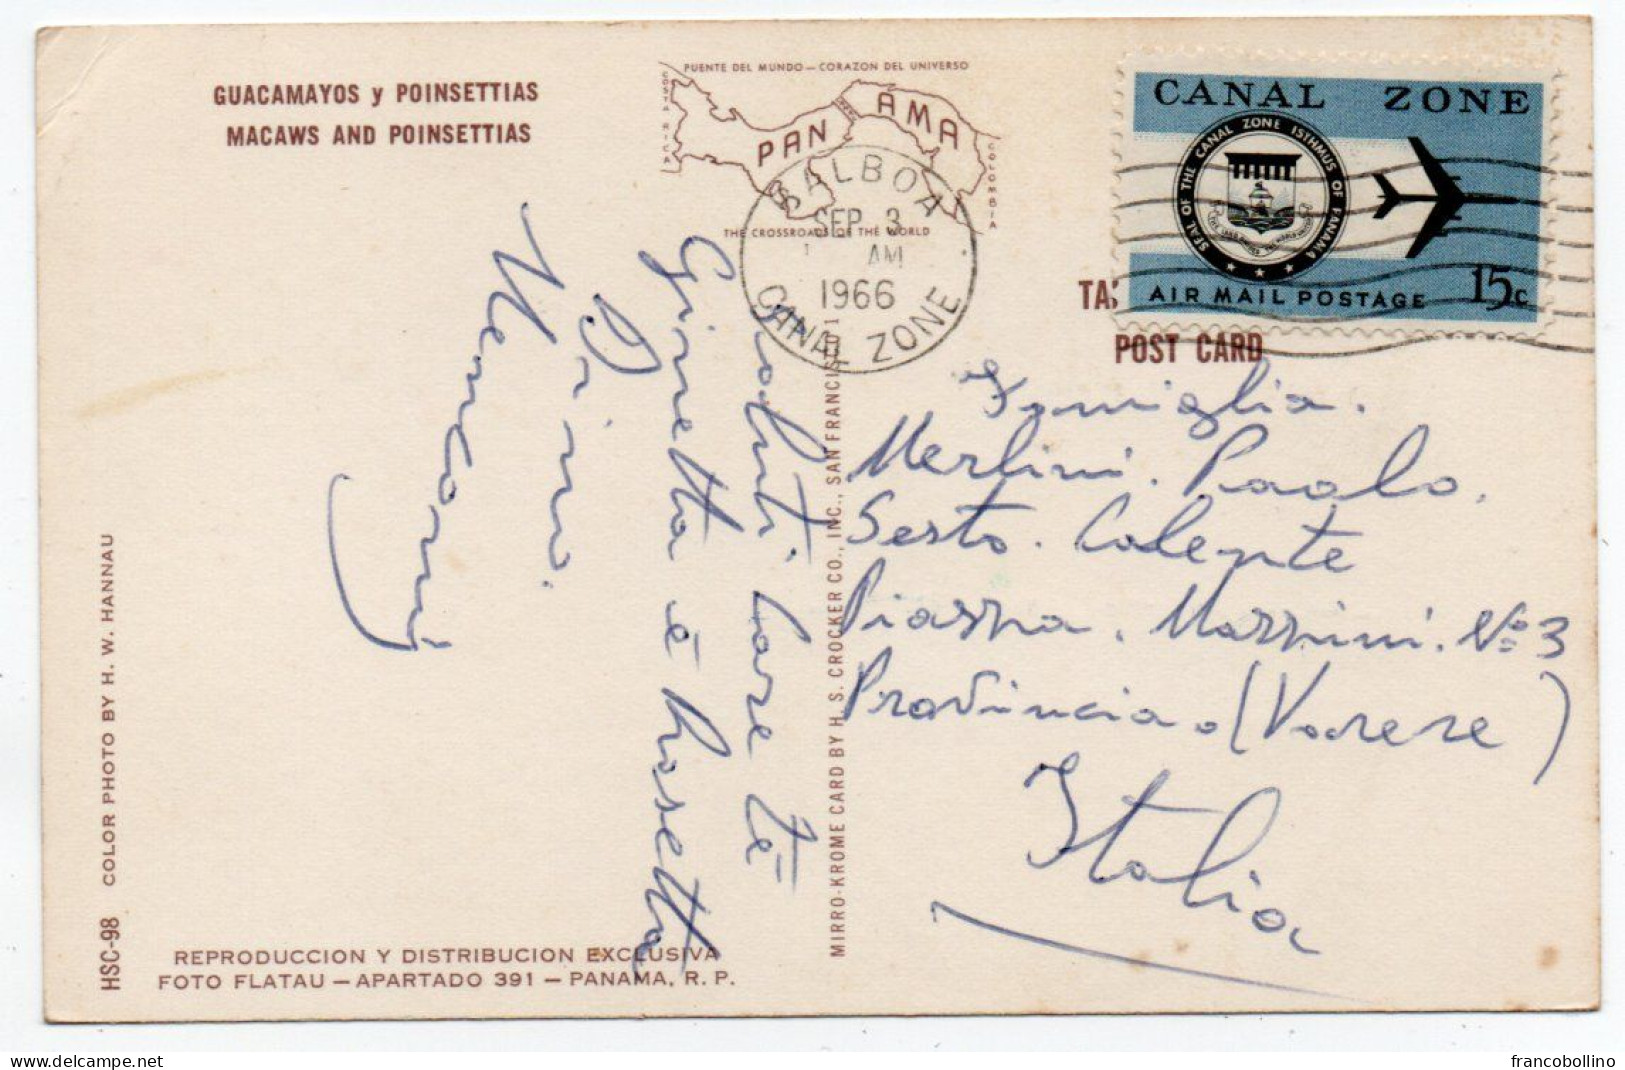 GUACAMAYOS y POINSETTIAS
MACAWS AND POINSETTIAS
PUENTE DEL MUNDO — CORAZON DEL UNIVERSO
COSTA RICA
PANAMA
COLOMBIA
THE CROSSROADS OF THE WORLD
BALBOA
SEP 3
AM
1966
CANAL ZONE
CANAL ZONE
SEAL OF THE CANAL ZONE ISTHMUS OF PANAMA
AIR MAIL POSTAGE 15c
TA
POST CARD
Famiglia.
Merlini. Paolo.
Sesto. Calente
Piazza. Mazzini. Nº 3
Provincia (Varese)
Italia
Saluti
Ginetta e Rosetta
Pino.
COLOR PHOTO BY H. W. HANNAU
HSC-98
MIRRO-KROME CARD BY H. S. CROCKER CO., INC., SAN FRANCIS
REPRODUCCION Y DISTRIBUCION EXCLUSIVA
FOTO FLATAU — APARTADO 391 — PANAMA, R. P.
francobollino
delcampe.net